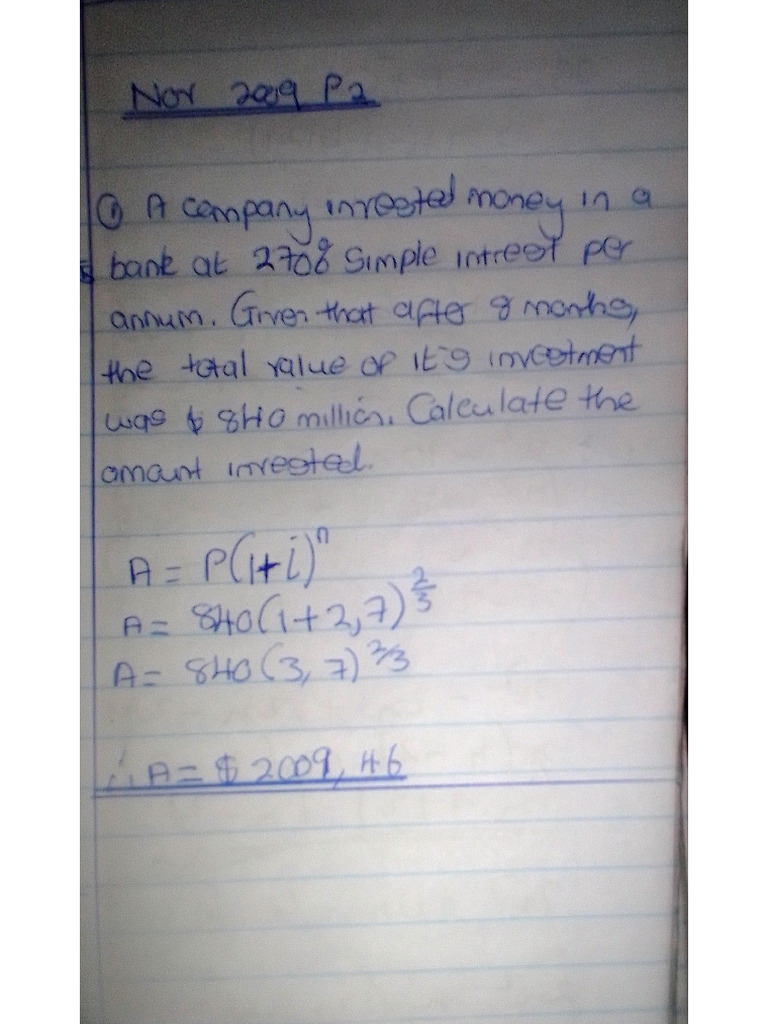 Nov 2009 P2
① A company invested money in a
bank at 270% simple intrest per
annum. Given that after 8 months,
the total value of it's investment
was $ 840 million. Calculate the
amount invested.
A = P(1+i)ⁿ
A = 840(1+2,7)^2/3
A = 840(3,7)^2/3
∴ A = $ 2009,46